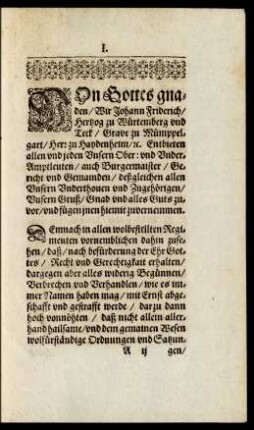 1.
VOn Gottes gna-
den / Wir Johann Friderich /
Hertzog zu Würtemberg vnd
Teck / Grave zu Mümppel-
gart / Her: zu Haydenheim / ꝛc. Entbieten
allen vnd jeden Vnsern Ober: vnd Vnder-
Amptleuten / auch Burgermaister / Ge-
richt vnd Gemainden / deßgleichen allen
Vnsern Vnderthonen vnd Zugehörigen /
Vnsern Gruß / Gnad vnd alles Guts zu-
vor / vnd fügen jnen hiemit zuvernemmen.
DEmnach in allen wolbestellten Regi-
menten vornemblichen dahin zusehen
/ daß / nach befürderung der Ehr Got-
tes / Recht vnd Gerechtigkeit erhalten /
dargegen aber alles widerig Begünnen /
Verbrechen vnd Verhandlen / wie es im-
mer Namen haben mag / mit Ernst abge-
schafft vnd gestrafft werde / dar zu dann
hoch vonnöhten / daß nicht allein aller-
hand hailsame / vnd dem gemainen Wesen
wolfürständige Ordnungen vnd Satzun-
A ij gen /